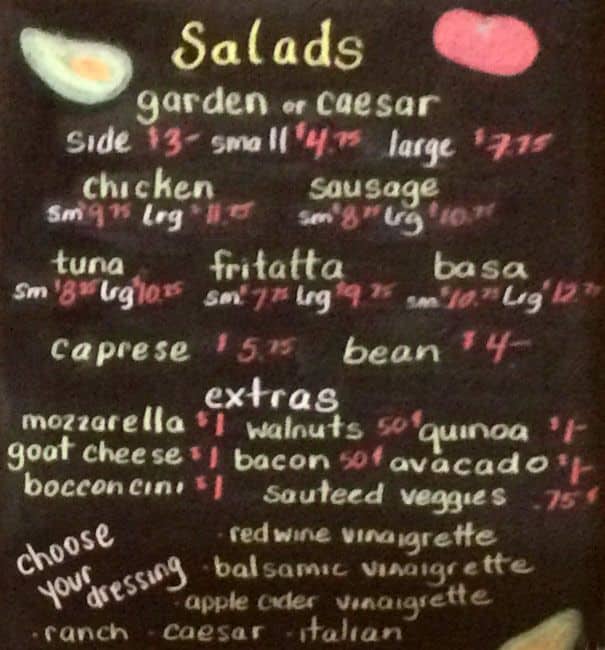 Salads
garden or caesar
side $3- small $4.75 large $7.75
chicken sausage
sm $9.75 Lrg $11.75 sm $8.75 Lrg $10.75
tuna fritatta basa
sm $8.25 Lrg $10.25 sm $7.75 Lrg $9.75 sm $10.75 Lrg $12.75
caprese $5.75 bean $4-
extras
mozzarella $1 walnuts 50¢ quinoa $1-
goat cheese $1 bacon 50¢ avacado $1-
bocconcini $1 sauteed veggies .75¢
choose your dressing
· red wine vinaigrette
· balsamic vinaigrette
· apple cider vinaigrette
· ranch · caesar · italian